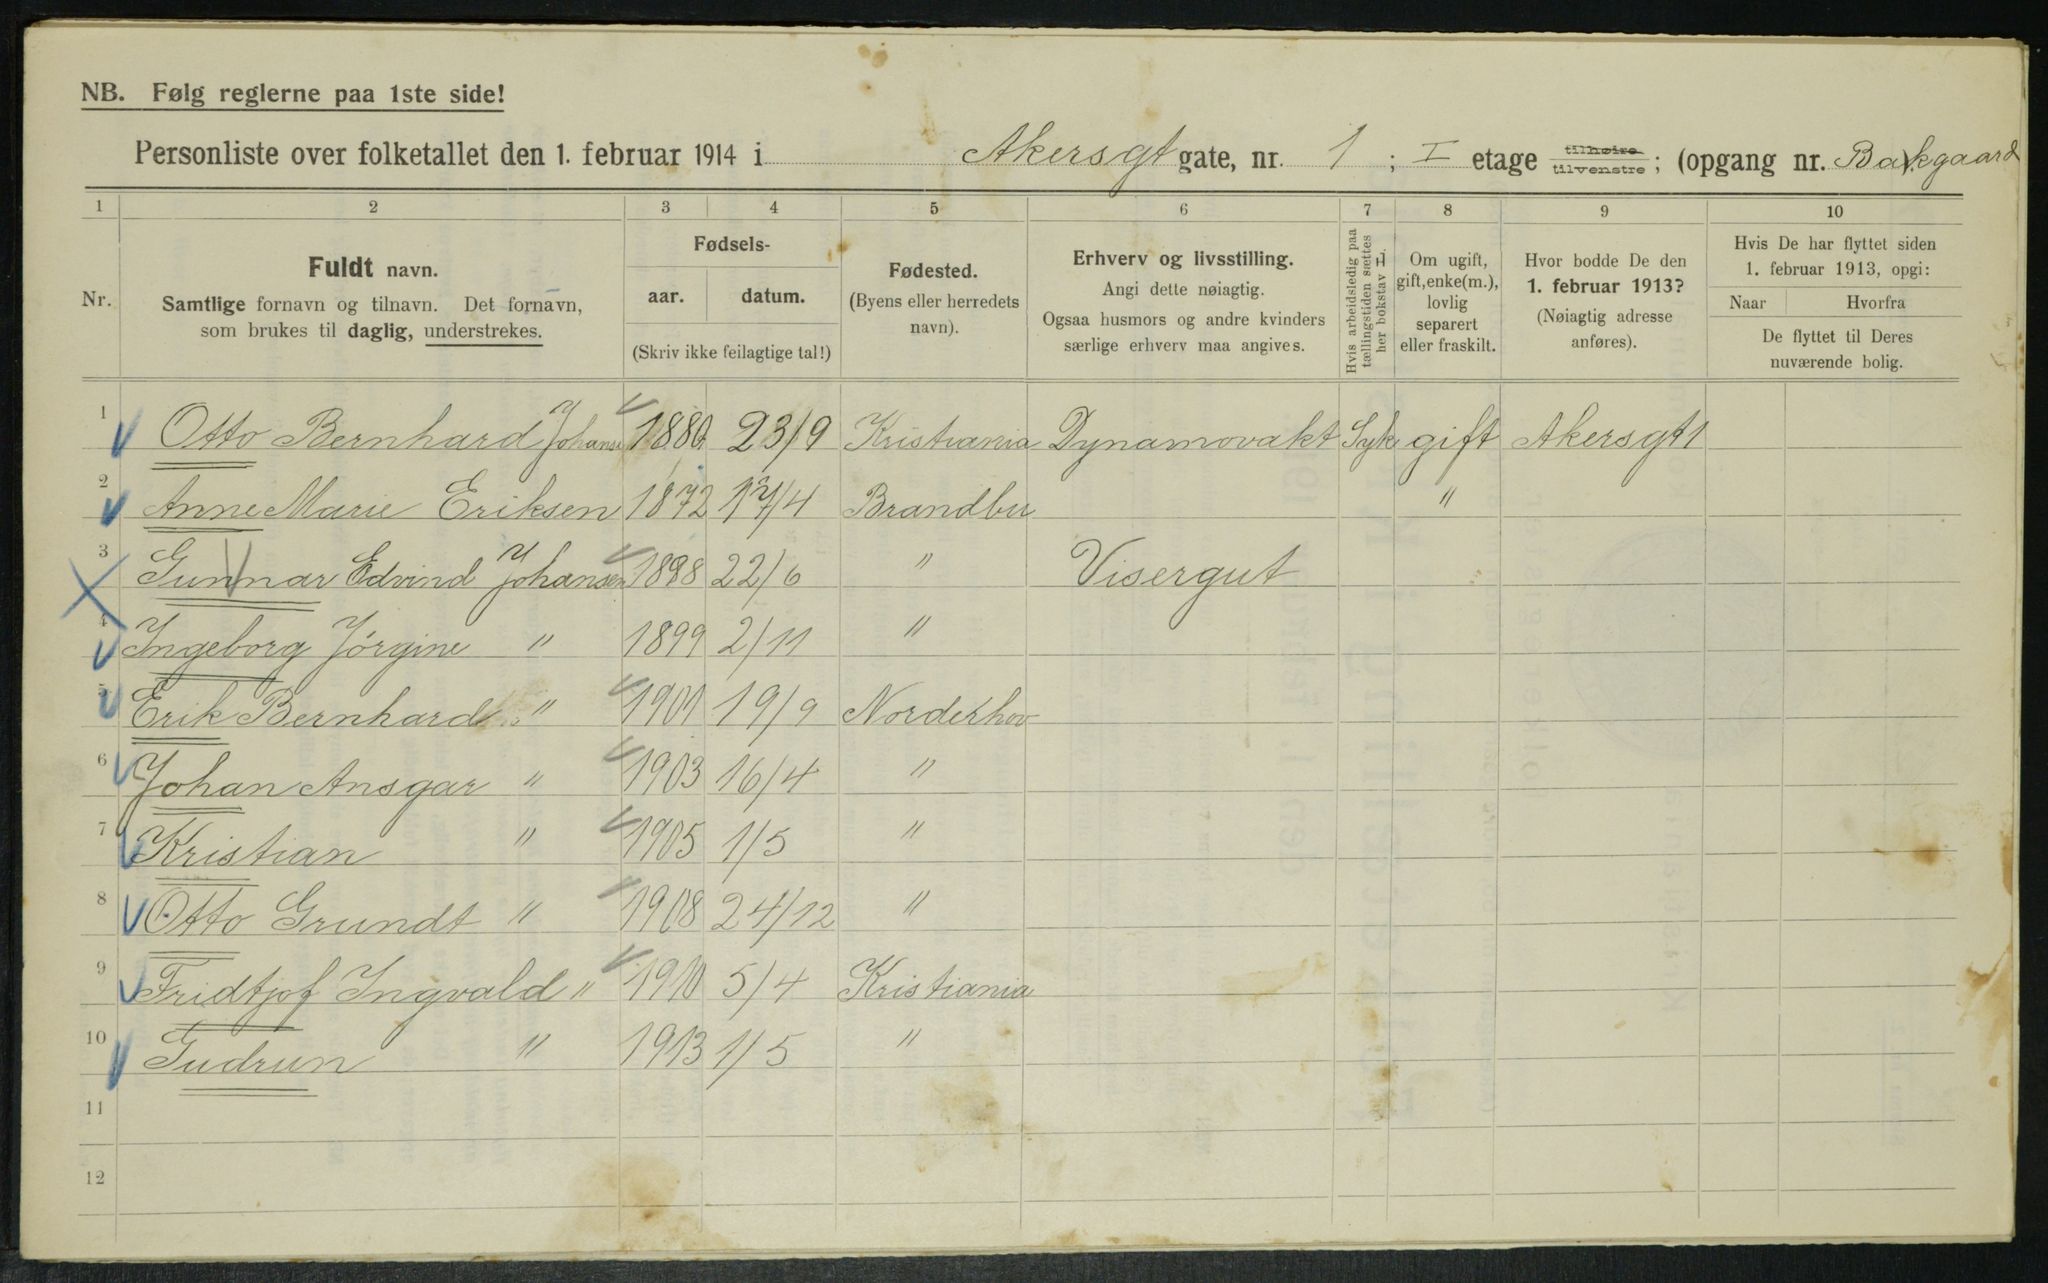 NB. Følg reglerne paa 1ste side!
Personliste over folketallet den 1. februar 1914 i Akersgt gate, nr. 1 ; I etage tilhøire tilvenstre ; (opgang nr. Bakgaard
1 2 3 4 5 6 7 8 9 10
Nr.
Fuldt navn.
Samtlige fornavn og tilnavn. Det fornavn,
som brukes til daglig, understrekes.
Fødsels-
aar. datum.
(Skriv ikke feilagtige tal!)
Fødested.
(Byens eller herredets
navn).
Erhverv og livsstilling.
Angi dette nøiagtig.
Ogsaa husmors og andre kvinders
særlige erhverv maa angives.
Hvis arbeidsledig paa
tællingstiden sættes
her bokstav L.
Om ugift,
gift, enke(m.),
lovlig
separert
eller fraskilt.
Hvor bodde De den
1. februar 1913?
(Nøiagtig adresse
anføres).
Hvis De har flyttet siden
1. februar 1913, opgi:
Naar Hvorfra
De flyttet til Deres
nuværende bolig.
1 Otto Bernhard Johanse 1880 23/9 Kristiania Dynamovakt Syk gift Akersgt 1
2 Anne Marie Eriksen 1872 17/4 Brandbu "
3 Gunnar Edvind Johansen 1898 22/6 " Visergut
4 Ingeborg Jørgine " 1899 2/11 "
5 Erik Bernhard " 1901 19/9 Norderhov
6 Johan Ansgar " 1903 16/4 "
7 Kristian " 1905 1/5 "
8 Otto Grundt " 1908 24/12 "
9 Fridtjof Ingvald " 1910 5/4 Kristiania
10 Gudrun " 1913 1/5 "
11
12